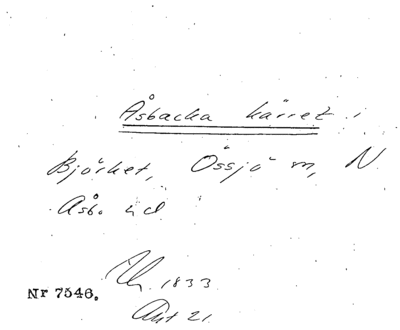 Åsbacka kärret i
Björket, Össjö m, N
Åsbo hd
1833
Akt 21.
Nr 7546.